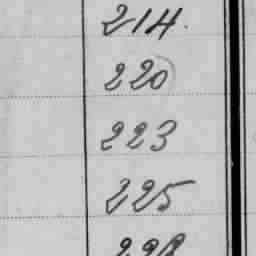 214.
220
223
225
228